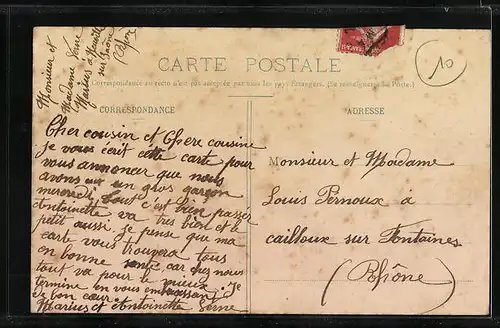 Monsieur et
Madame Serre
Marius à Neuville
sur Saône
(Rhône)
10
CARTE POSTALE
La Correspondance au recto n'est pas acceptée par tous les pays étrangers. (Se renseigner à la Poste.)
CORRESPONDANCE
ADRESSE
Cher cousin et Chere cousine
je vous écrit cette carte pour
vous annoncer que nous
avons eu un gros garçon
mercredi tout c'est bien passer
Antoinette va très bien et le
petit aussi. je pense que ma
carte vous trouvera tous
en bonne santé car chez nous
tout va pour le mieux. Je
termine en vous embrassant
de bon cœur.
Marius et Antoinette Serre
Monsieur et Madame
Louis Pernoux á
cailloux sur Fontaines
(Rhône)